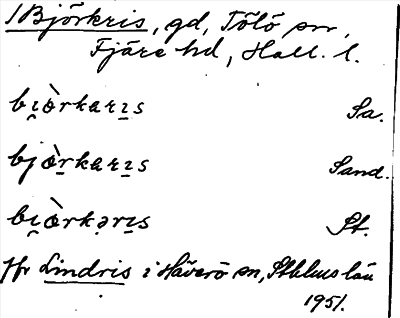 1 Björkris, gd, Tölö sn,
Fjäre hd, Hall. l.
bi̯æ̀rkarɪs Sa.
bjæ̀rkarɪs Sand.
bi̯æ̀rkərɪs St.
Jfr Lindris i Häverö sn, Sthlms län
1951.